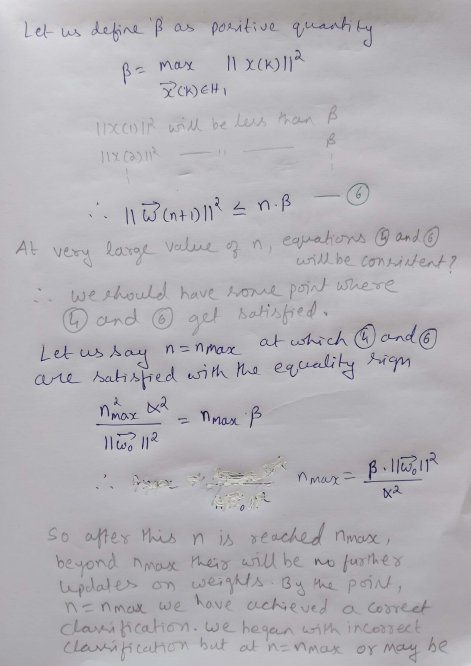 Let us define β as positive quantity
β = max ||x(k)||²
x⃗(k)∈H₁
||x(1)||² will be less than β
||x(2)||² —— " —— β
∴ ||w⃗(n+1)||² ≤ n.β — ⑥
At very large value of n, equations ④ and ⑥
will be consistent?
∴ we should have some point where
④ and ⑥ get satisfied.
Let us say n = nmax at which ④ and ⑥
are satisfied with the equality sign
n²max α² / ||w⃗₀||² = nmax β
∴ nmax = β.||w⃗₀||² / α²
So after this n is reached nmax,
beyond nmax their will be no further
updates on weights. By the point,
n = nmax we have achieved a correct
classification. We began with incorrect
classification but at n = nmax or may be